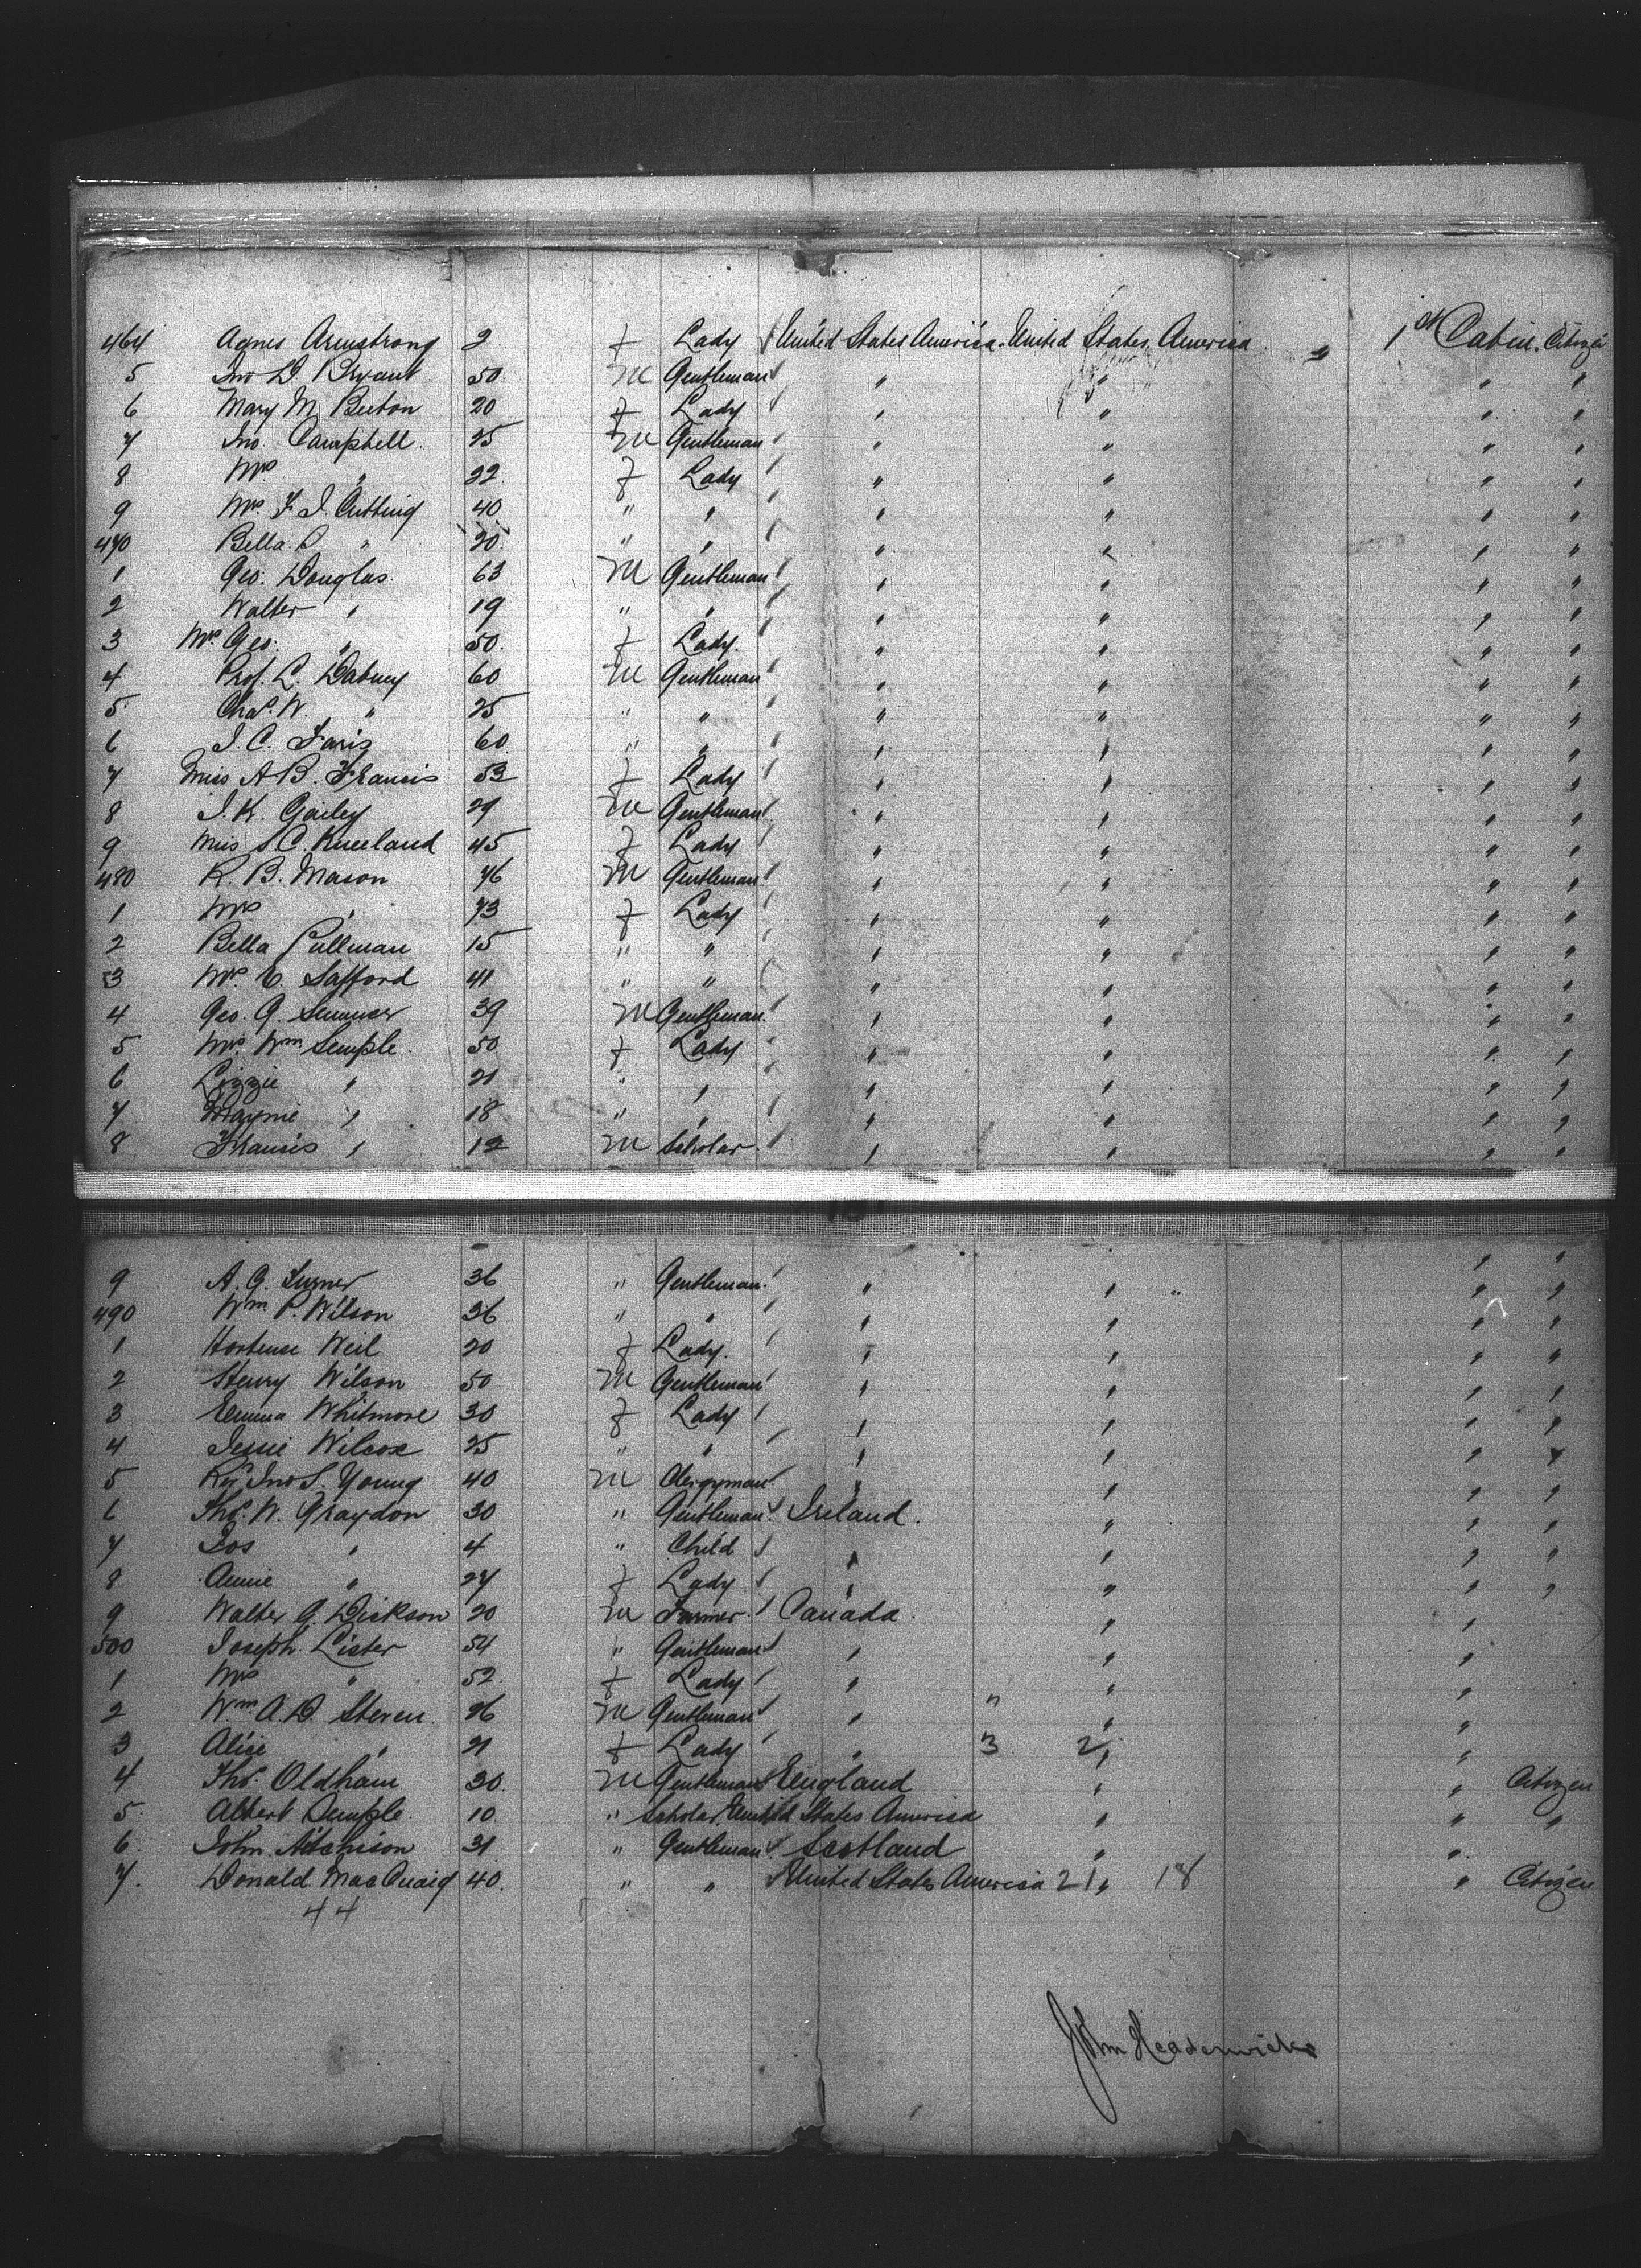 464 Agnes Armstrong 2 f Lady United States America. United States America. " 1st Cabin. Citizen
5 Jno D. Bryant 50. M Gentleman " " " "
6 Mary M. Beeton 20 f Lady " " " "
7 Jno. Campbell. 25 M Gentleman " " " "
8 Mrs " 22. f Lady " " " "
9 Mrs. F. J. Cutting 40 " " " " " "
470 Bella. C " 20. " " " " " "
1 Geo. Douglas. 63 M Gentleman " " " "
2 Walter " 19 " " " " " "
3 Mrs Geo. " 50. f Lady. " " " "
4 Prof. L. Dabney 60 M Gentleman " " " "
5 Chas. W. " 25 " " " " " "
6 J. C. Faris 60 " " " " " "
7 Miss A B. Francis 53 f Lady " " " "
8 J. K. Gailey 29 M Gentleman " " " "
9 Miss S C. Kneeland 45 f Lady " " " "
480 R. B. Mason 76 M Gentleman " " " "
1 Mrs " 73 f Lady " " " "
2 Bella Pullman 15 " " " " " "
3 Mrs. C. Safford 41 " " " " " "
4 Geo. G. Sumner 39 M Gentleman. " " " "
5 Mrs. Wm Semple. 50 f Lady " " " "
6 Lizzie " 21 " " " " " "
7 Maymie " 18 " " " " " "
8 Francis " 12 M Scholar. " " " "
9 A. G. Turner 36 " Gentleman. " " " "
490 Wm. P. Wilson 36 " " " " " "
1 Hortense Weil 20 f Lady. " " " "
2 Henry Wilson 50 M Gentleman " " " "
3 Emma Whitmore 30 f Lady " " " "
4 Jessie Wilcox 25 " " " " " "
5 Rev. Jno S. Young 40 M Clergyman. " " " "
6 Thos. W. Graydon 30 " Gentleman. Ireland. " " "
7 Jos " 4 " Child " " " "
8 Annie " 27 f Lady " " " "
9 Walter G. Dickson 20 M Farmer. Canada. " "
500 Joseph. Lister 54 " Gentleman " " "
1 Mrs " 52. f Lady " " "
2 Wm A. D. Steven. 26 M Gentleman " " "
3 Alice " 21 f Lady " 3 2 " "
4 Thos. Oldham 30. M Gentleman England " " Citizen
5 Albert Semple. 10. " Scholar United States America " " "
6. John Aitchison 31 " Gentleman Scotland " "
7. Donald MacQuaig 40. " " United States America 21 " 18 " Citizen
44
John Hedderwick